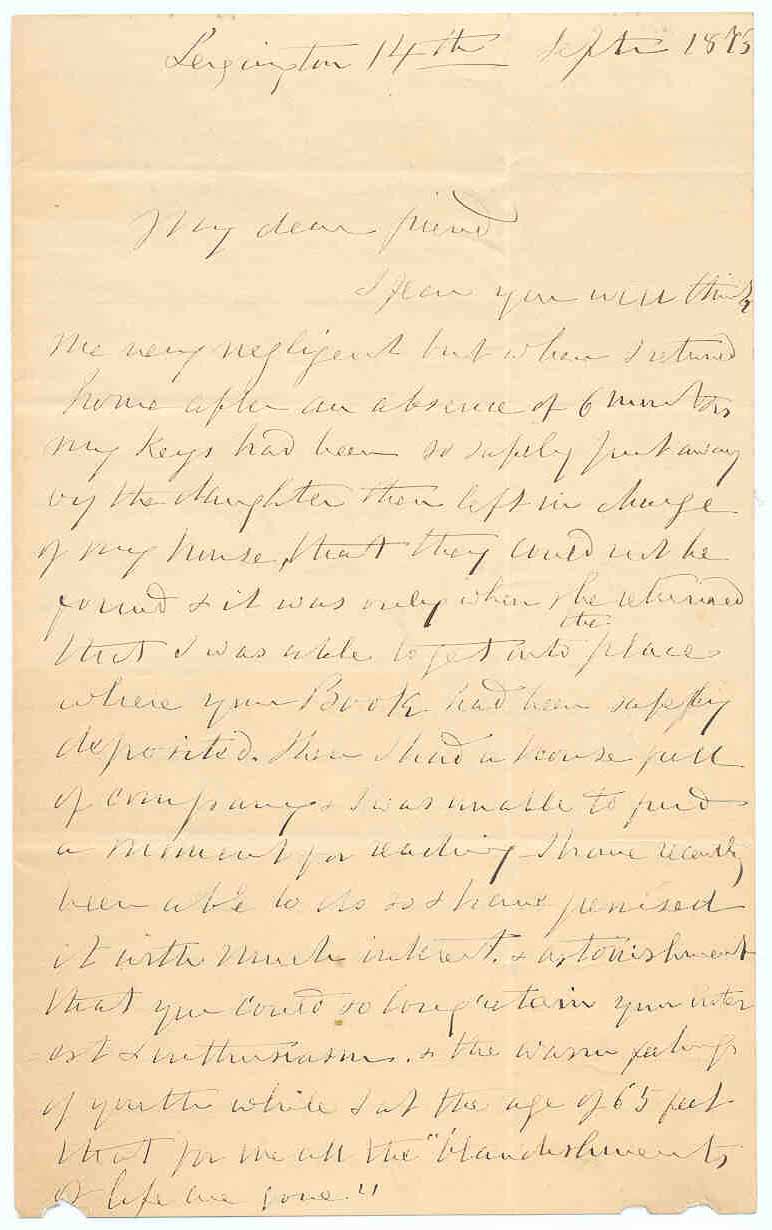 Lexington 14th Septr 1875
My dear friend
I fear you will think
me very negligent but when I returned
home after an absence of 6 months
my keys had been so safely put away
by the daughter then left in charge
of my house, that they could not be
found & it was only when she returned
that I was able to get into the place
where your Book had been safely
deposited. Then I had a house full
of company & I was unable to find
a moment for reading - I have recently
been able to do so & have perused
it with much interest. & astonishment
that you could so long retain your inter
est & enthusiasm. & the warm feelings
of youth while I at the age of 65 feel
that for me all the "blandishments
of life are gone."